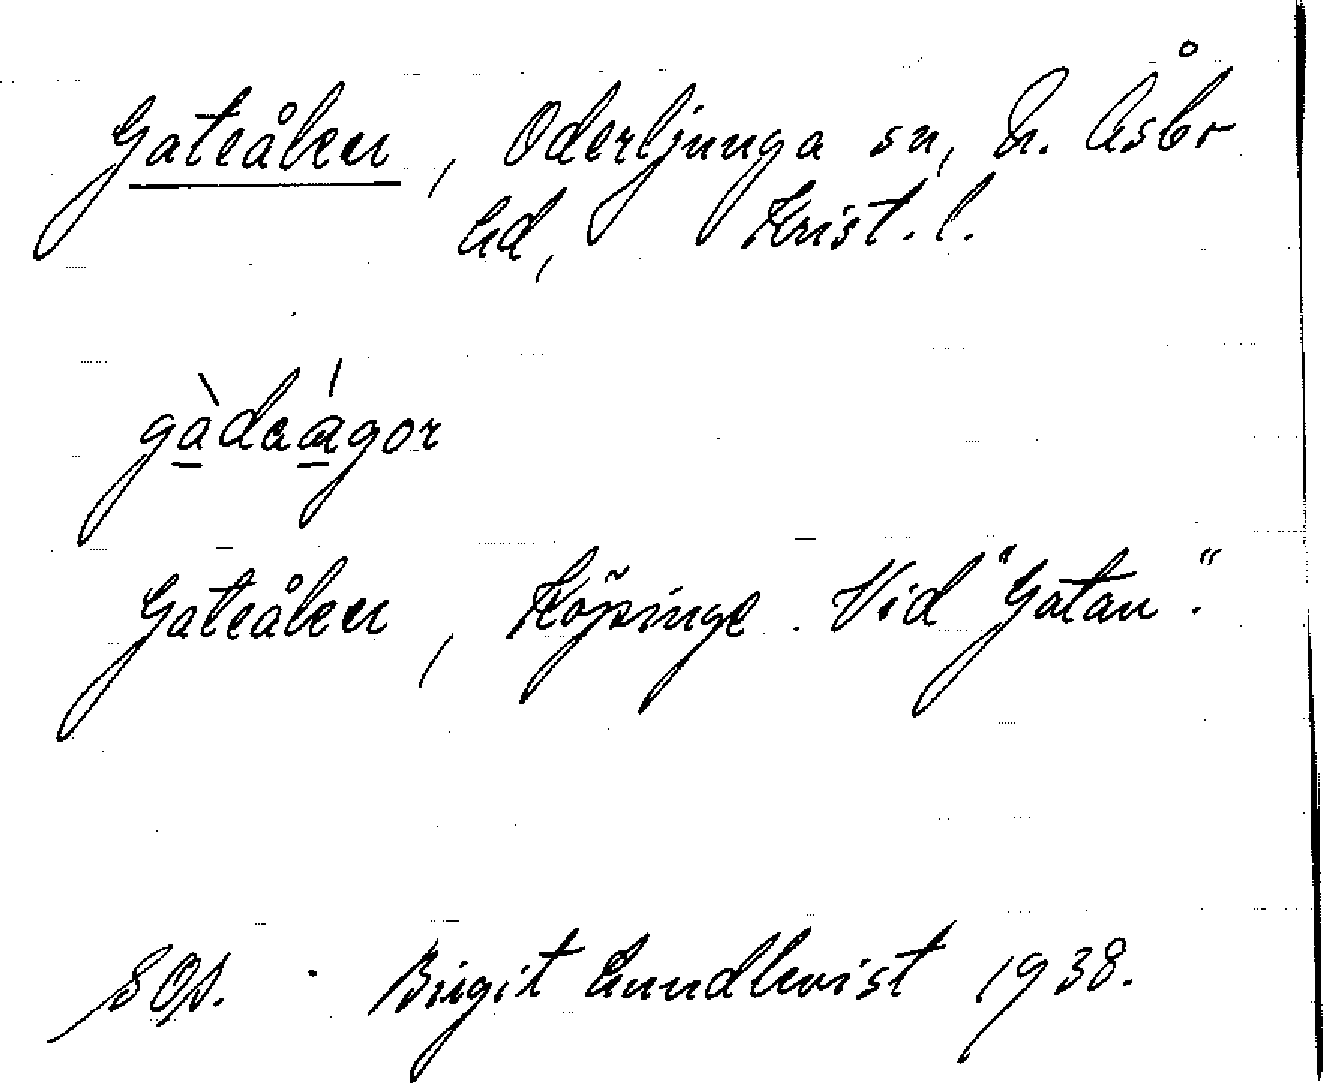 Gateåken, Oderljunga sn, N. Åsbo
hd, Krist. l.
gàdaágor
Gateåken, Köpinge. Vid "Gatan".
SOs. Birgit Lundkvist 1938.